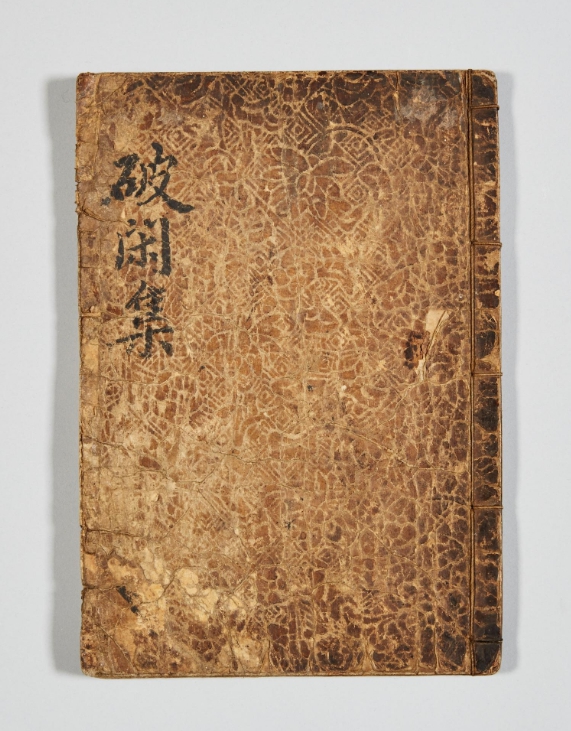 破閑集